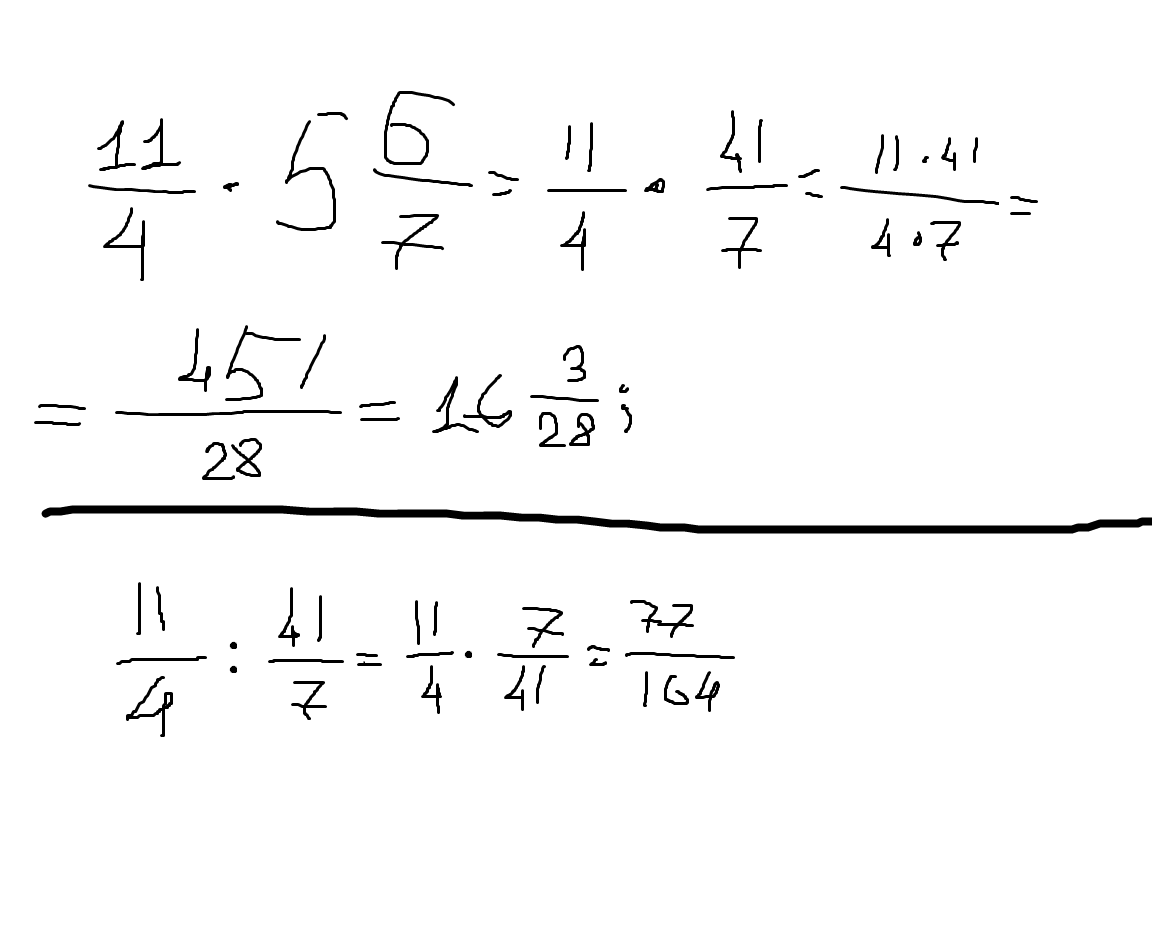 11/4 · 5 6/7 = 11/4 · 41/7 = 11·41/4·7 =
= 451/28 = 16 3/28;
11/4 : 41/7 = 11/4 · 7/41 = 77/164